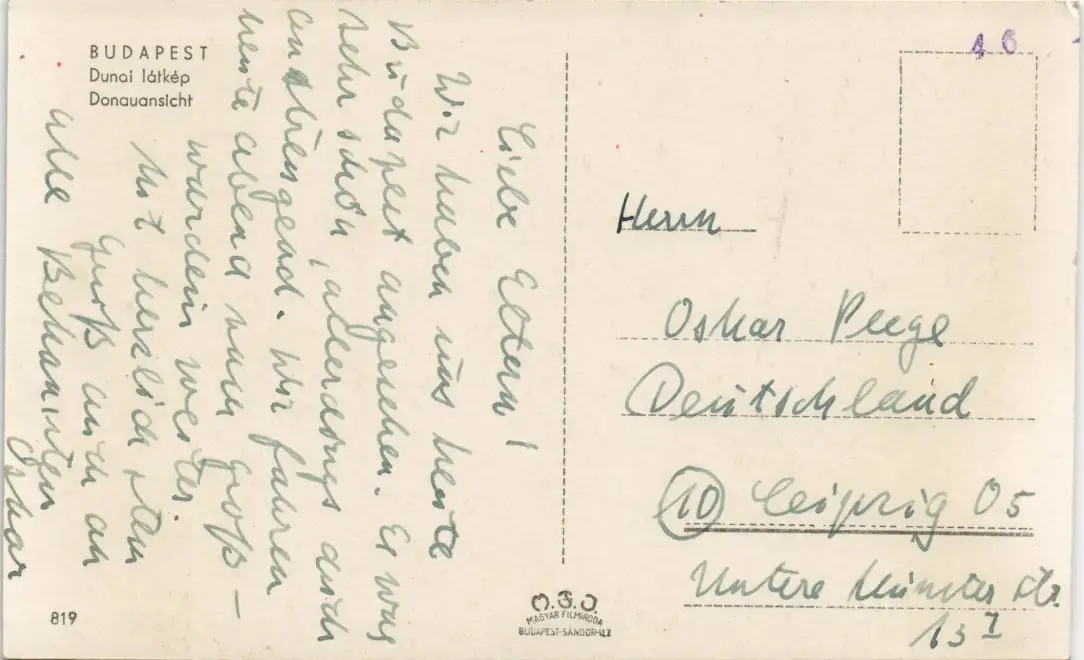 BUDAPEST
Dunai látkép
Donauansicht
Liebe Eltern!
Wir haben uns heute
Budapest angesehen. Es war
sehr schön, allerdings auch
anstrengend. Wir fahren
heute abend nach Groß-
wardein weiter.
Mit herzlichsten
Gruß auch an
alle Bekannten
Oskar
16
Herrn
Oskar Peege
Deutschland
(10) Leipzig O5
Untere Münsterstr.
13 I
819
M.F.I.
MAGYAR FILMIRODA
BUDAPEST-SÁNDOR-U.2